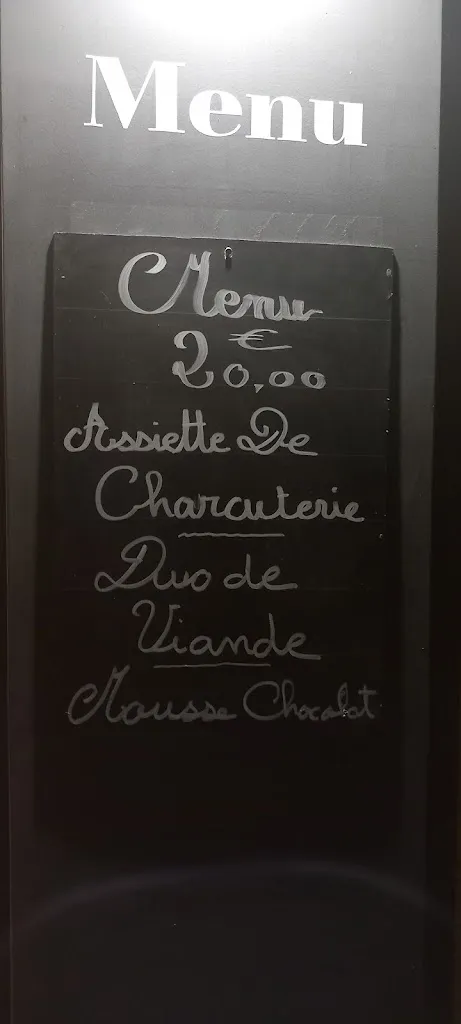 Menu
Menu
€
20,00
Assiette De
Charcuterie
Duo de
Viande
Mousse Chocolat